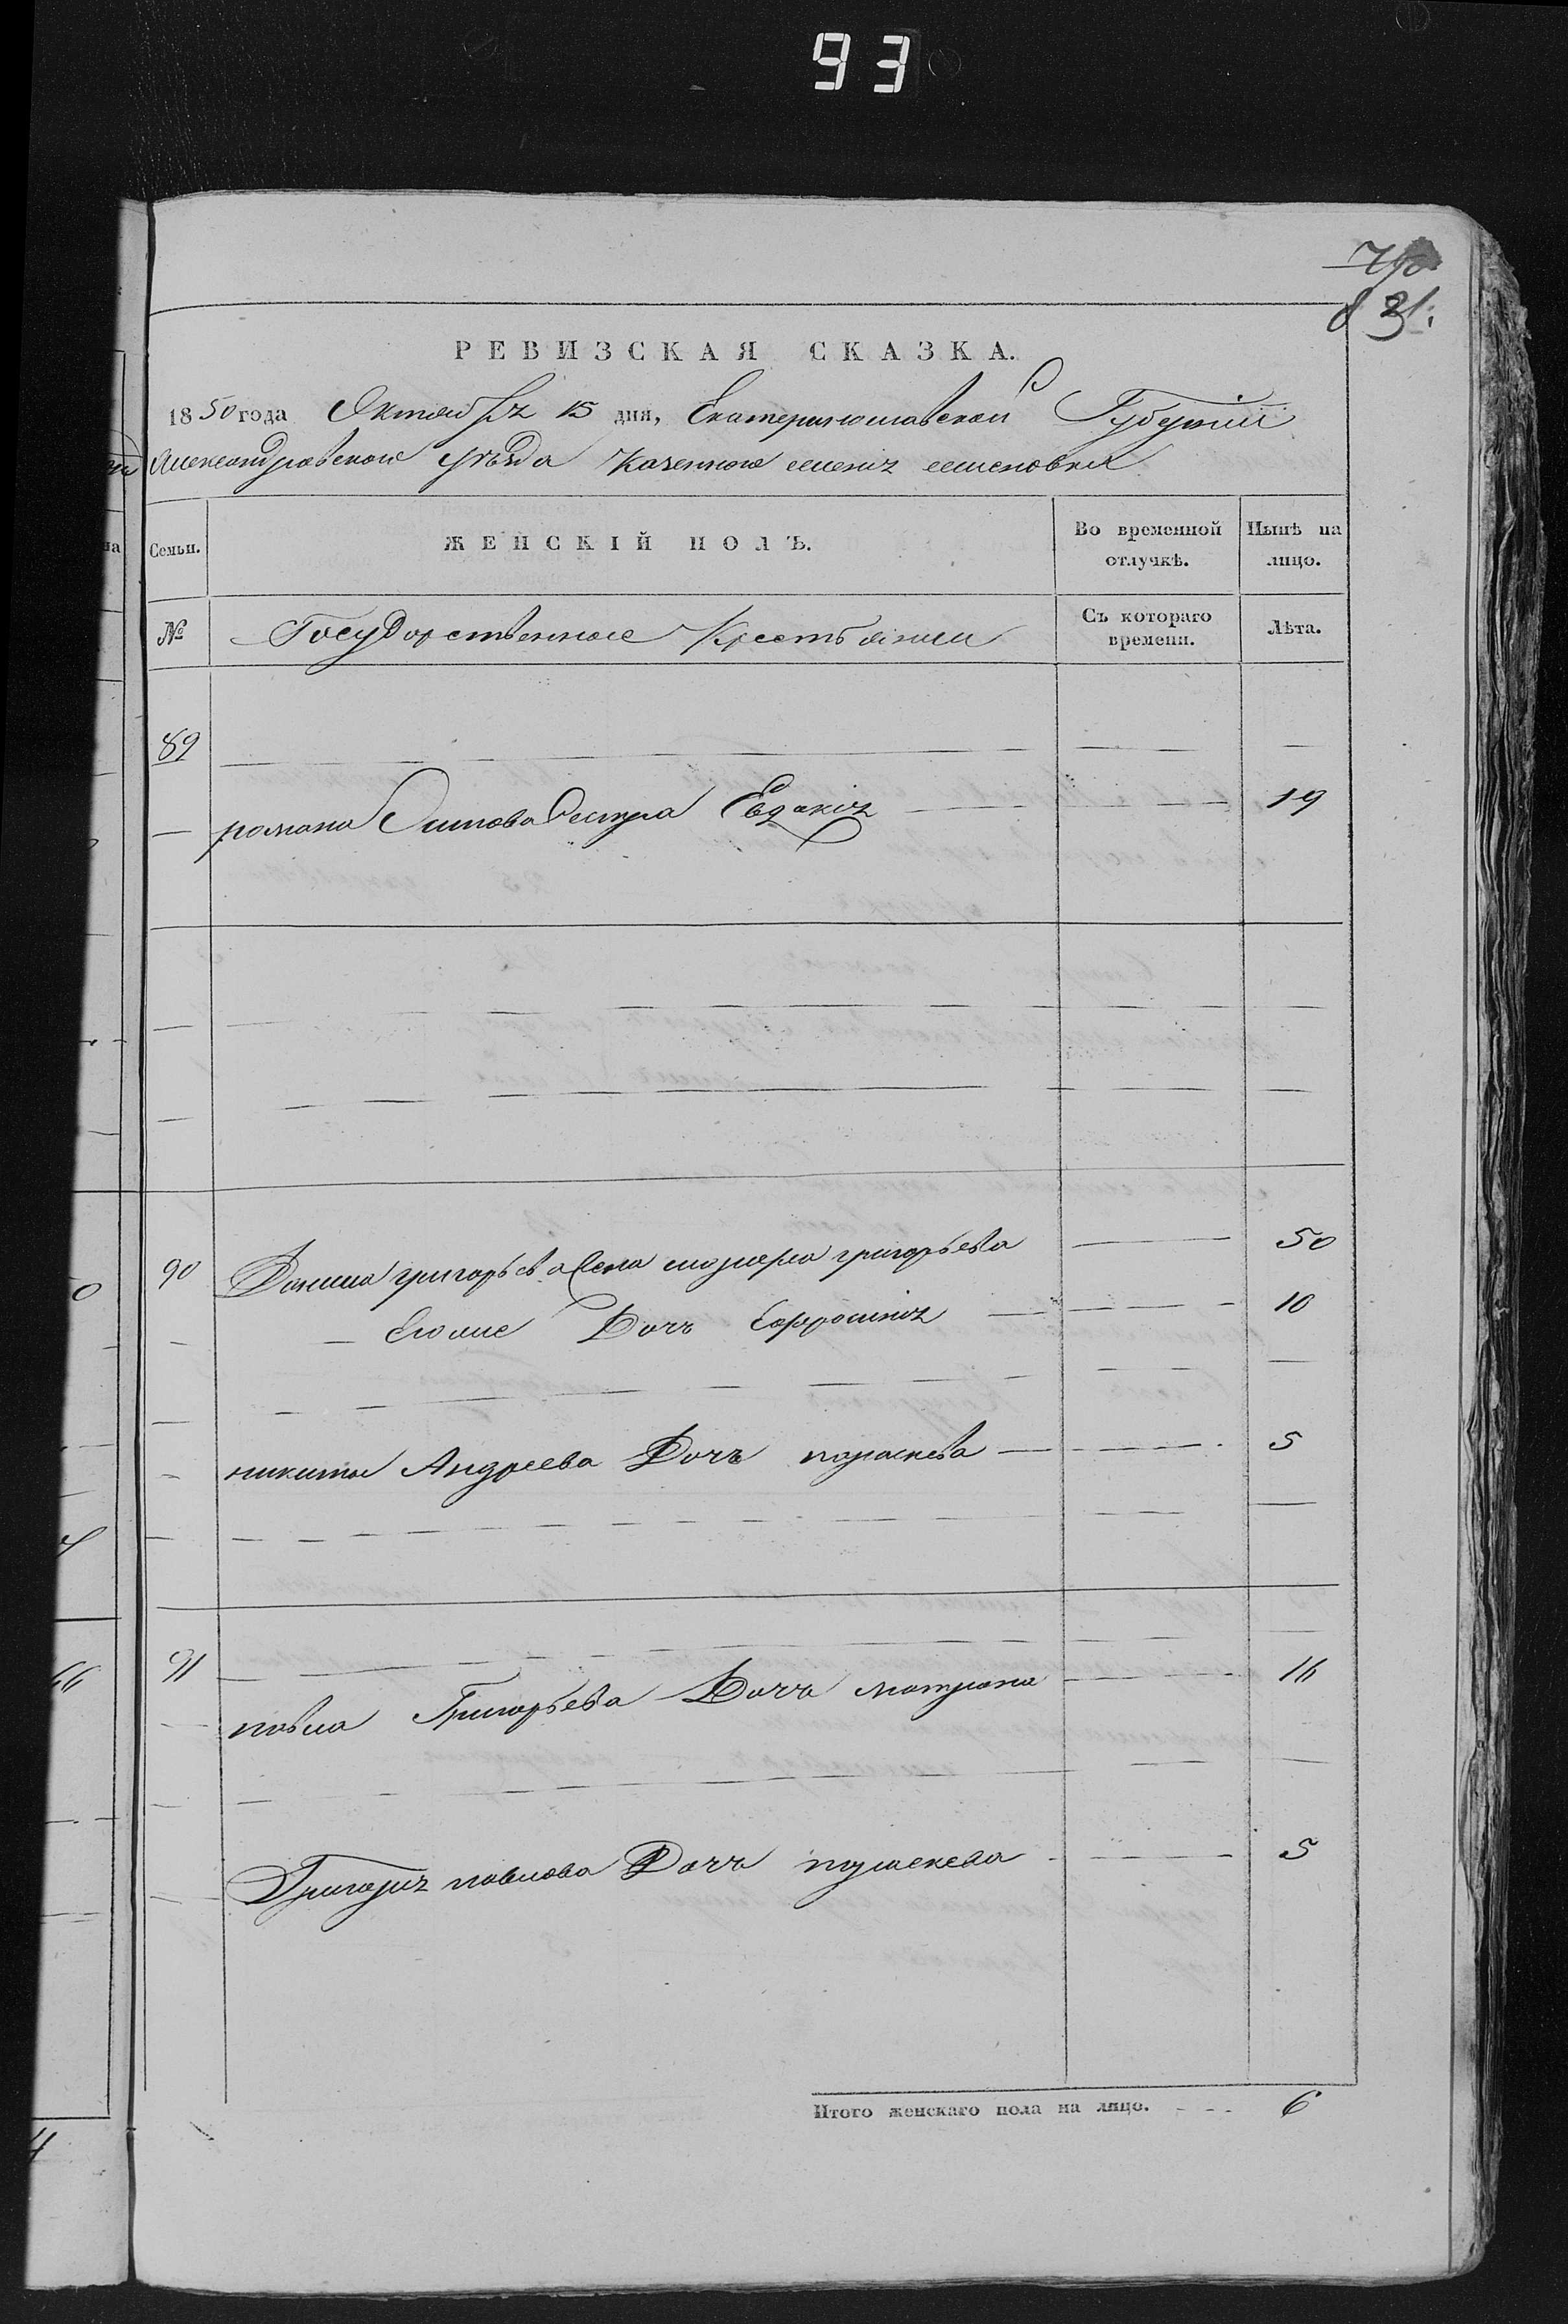 93
831.
РЕВИЗСКАЯ СКАЗКА.
1850 года Октября 15 дня, Екатеринославской Губернии
Александровского уезда казенного селения
Семьи. ЖЕНСКІЙ ПОЛЪ. Во временной отлучкѣ. Нынѣ на лицо.
№ Государственные Крестьянки Съ котораго времени. Лѣта.
89
романа Осипова Сестра Евдокія 19
90 Данила григорьева мачиха григорьева 50
Его же Дочь Ефросинія 10
никиты Андреева Дочь параскева 5
91
павла Григорьева Дочь матрона 16
Григорія павлова Дочь параскева 5
Итого женскаго пола на лицо. 6